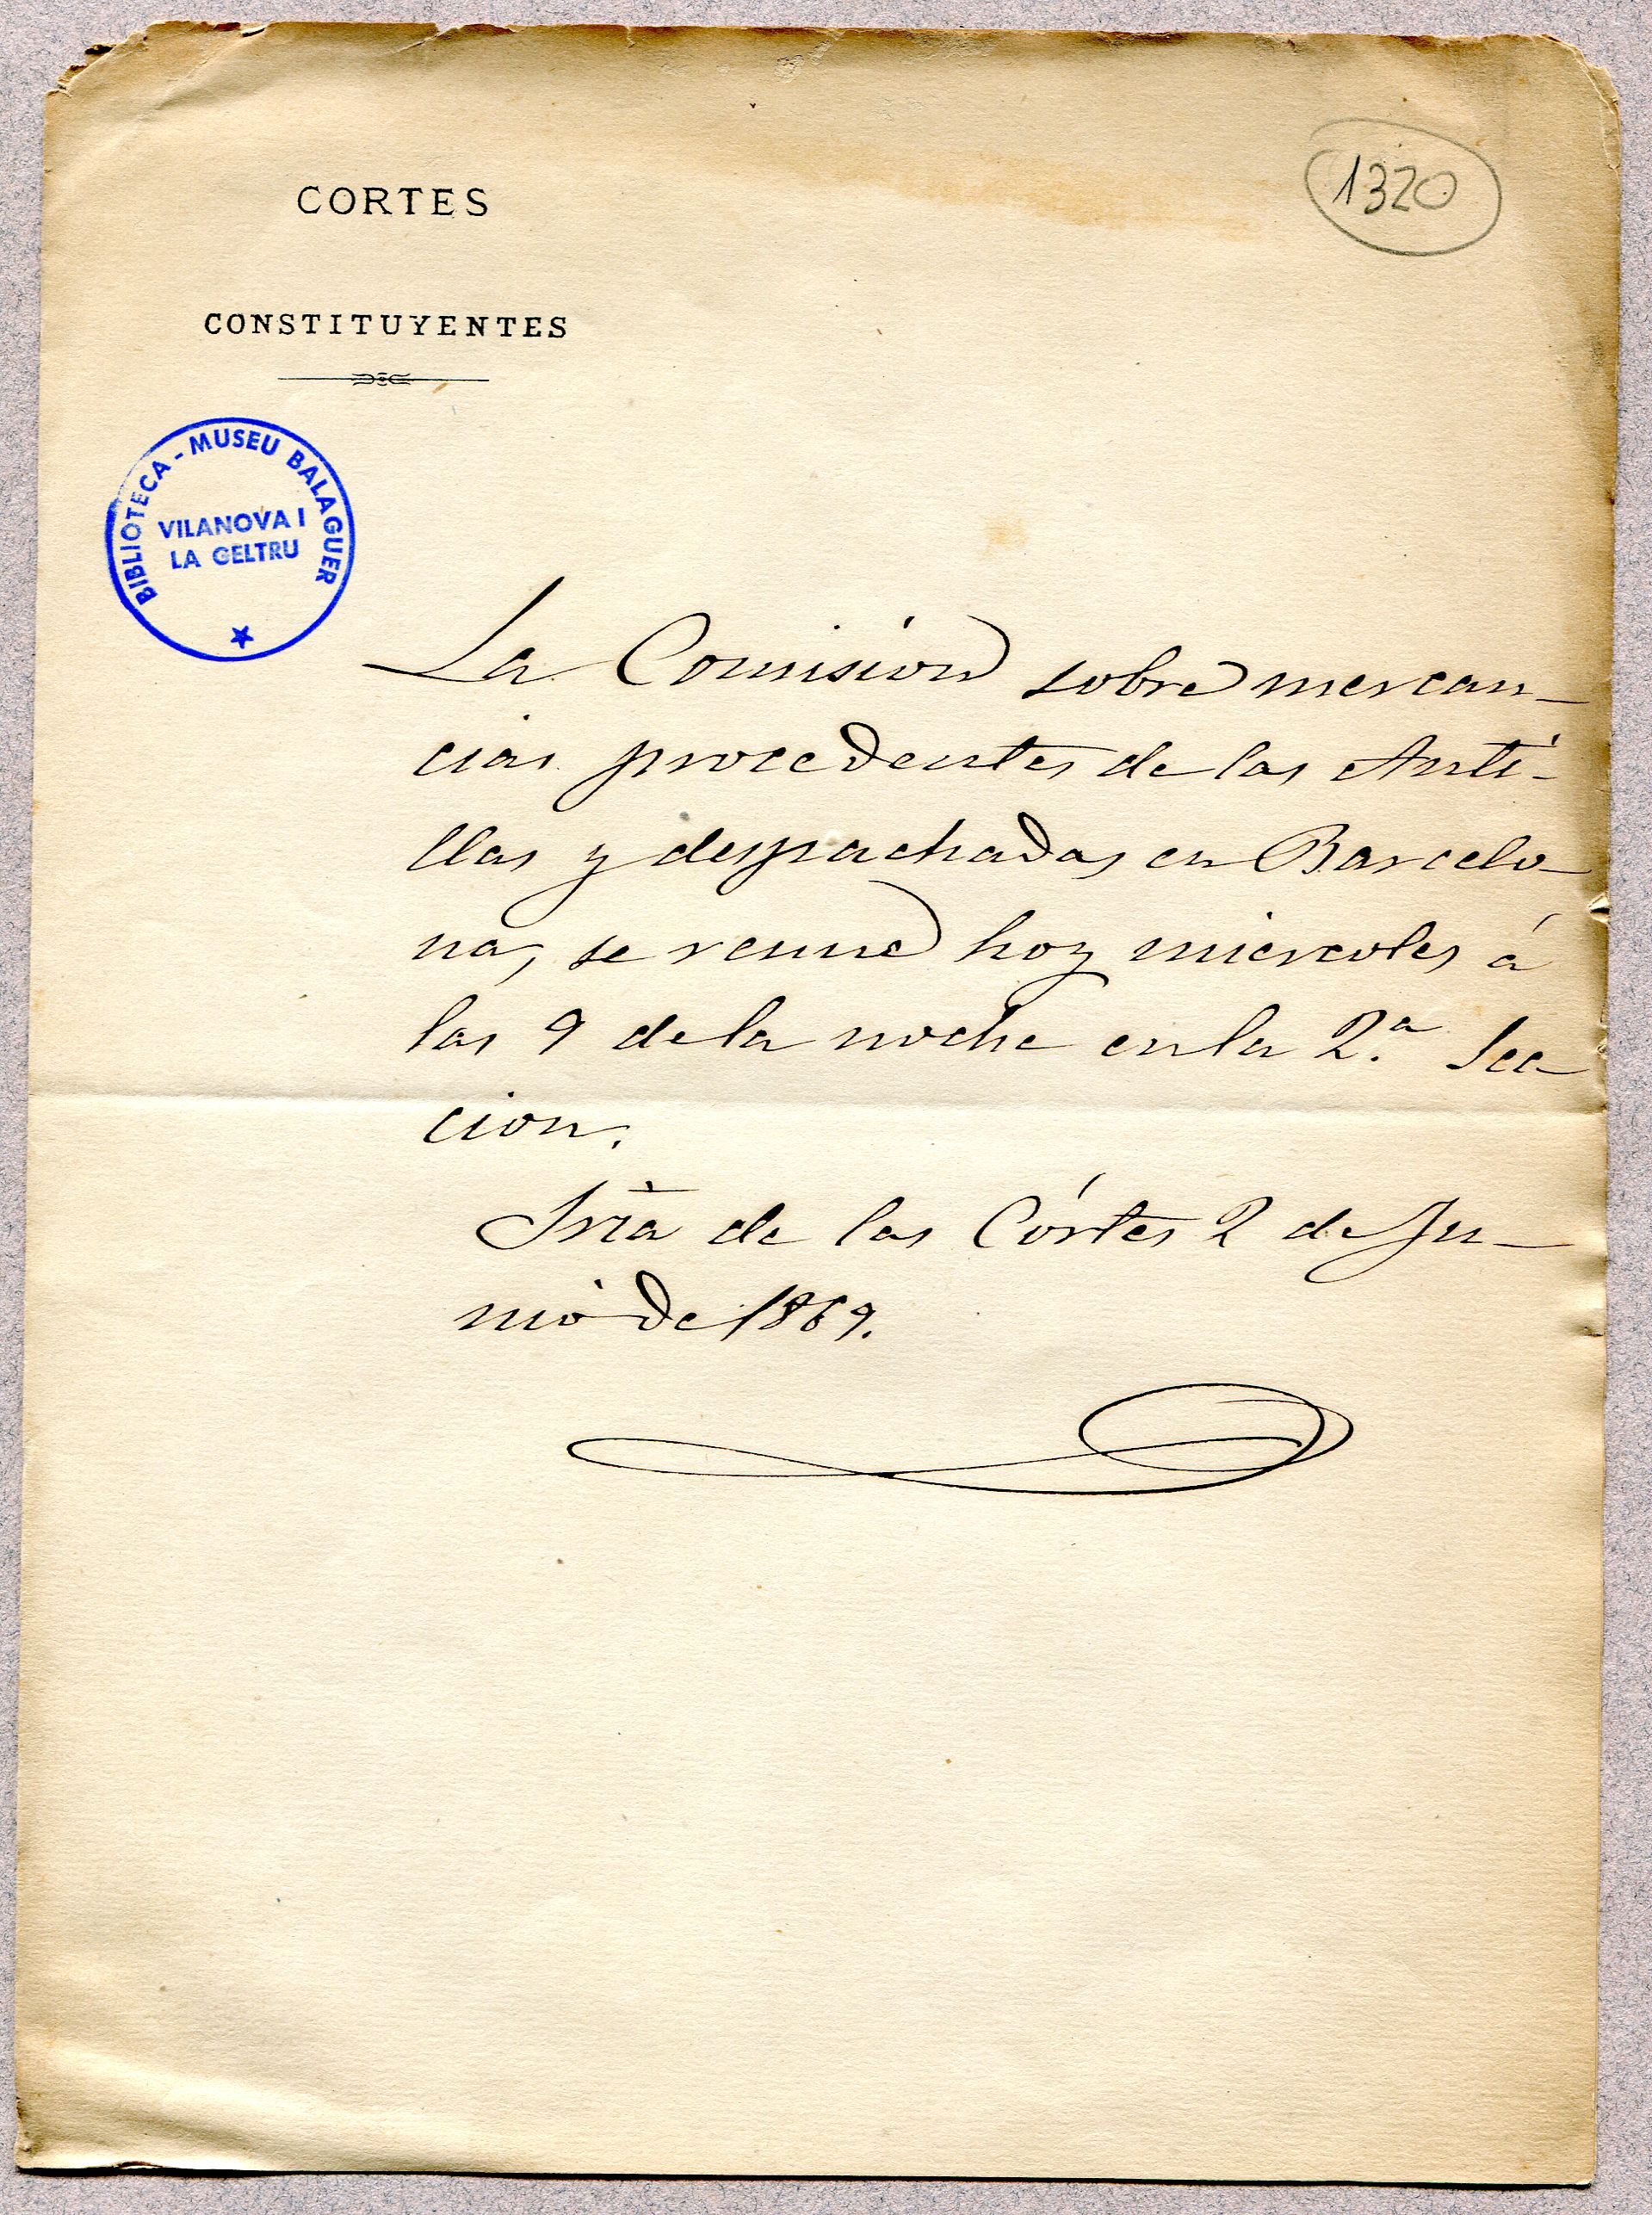 1320
CORTES
CONSTITUYENTES
BIBLIOTECA - MUSEU BALAGUER
VILANOVA I
LA GELTRU
La Comision sobre mercan-
cias procedentes de las Anti-
llas y despachadas en Barcelo-
na, se reune hoy miercoles á
las 9 de la noche en la 2.ª Sec-
cion.
Sría de las Córtes 2 de Ju-
nio de 1869.